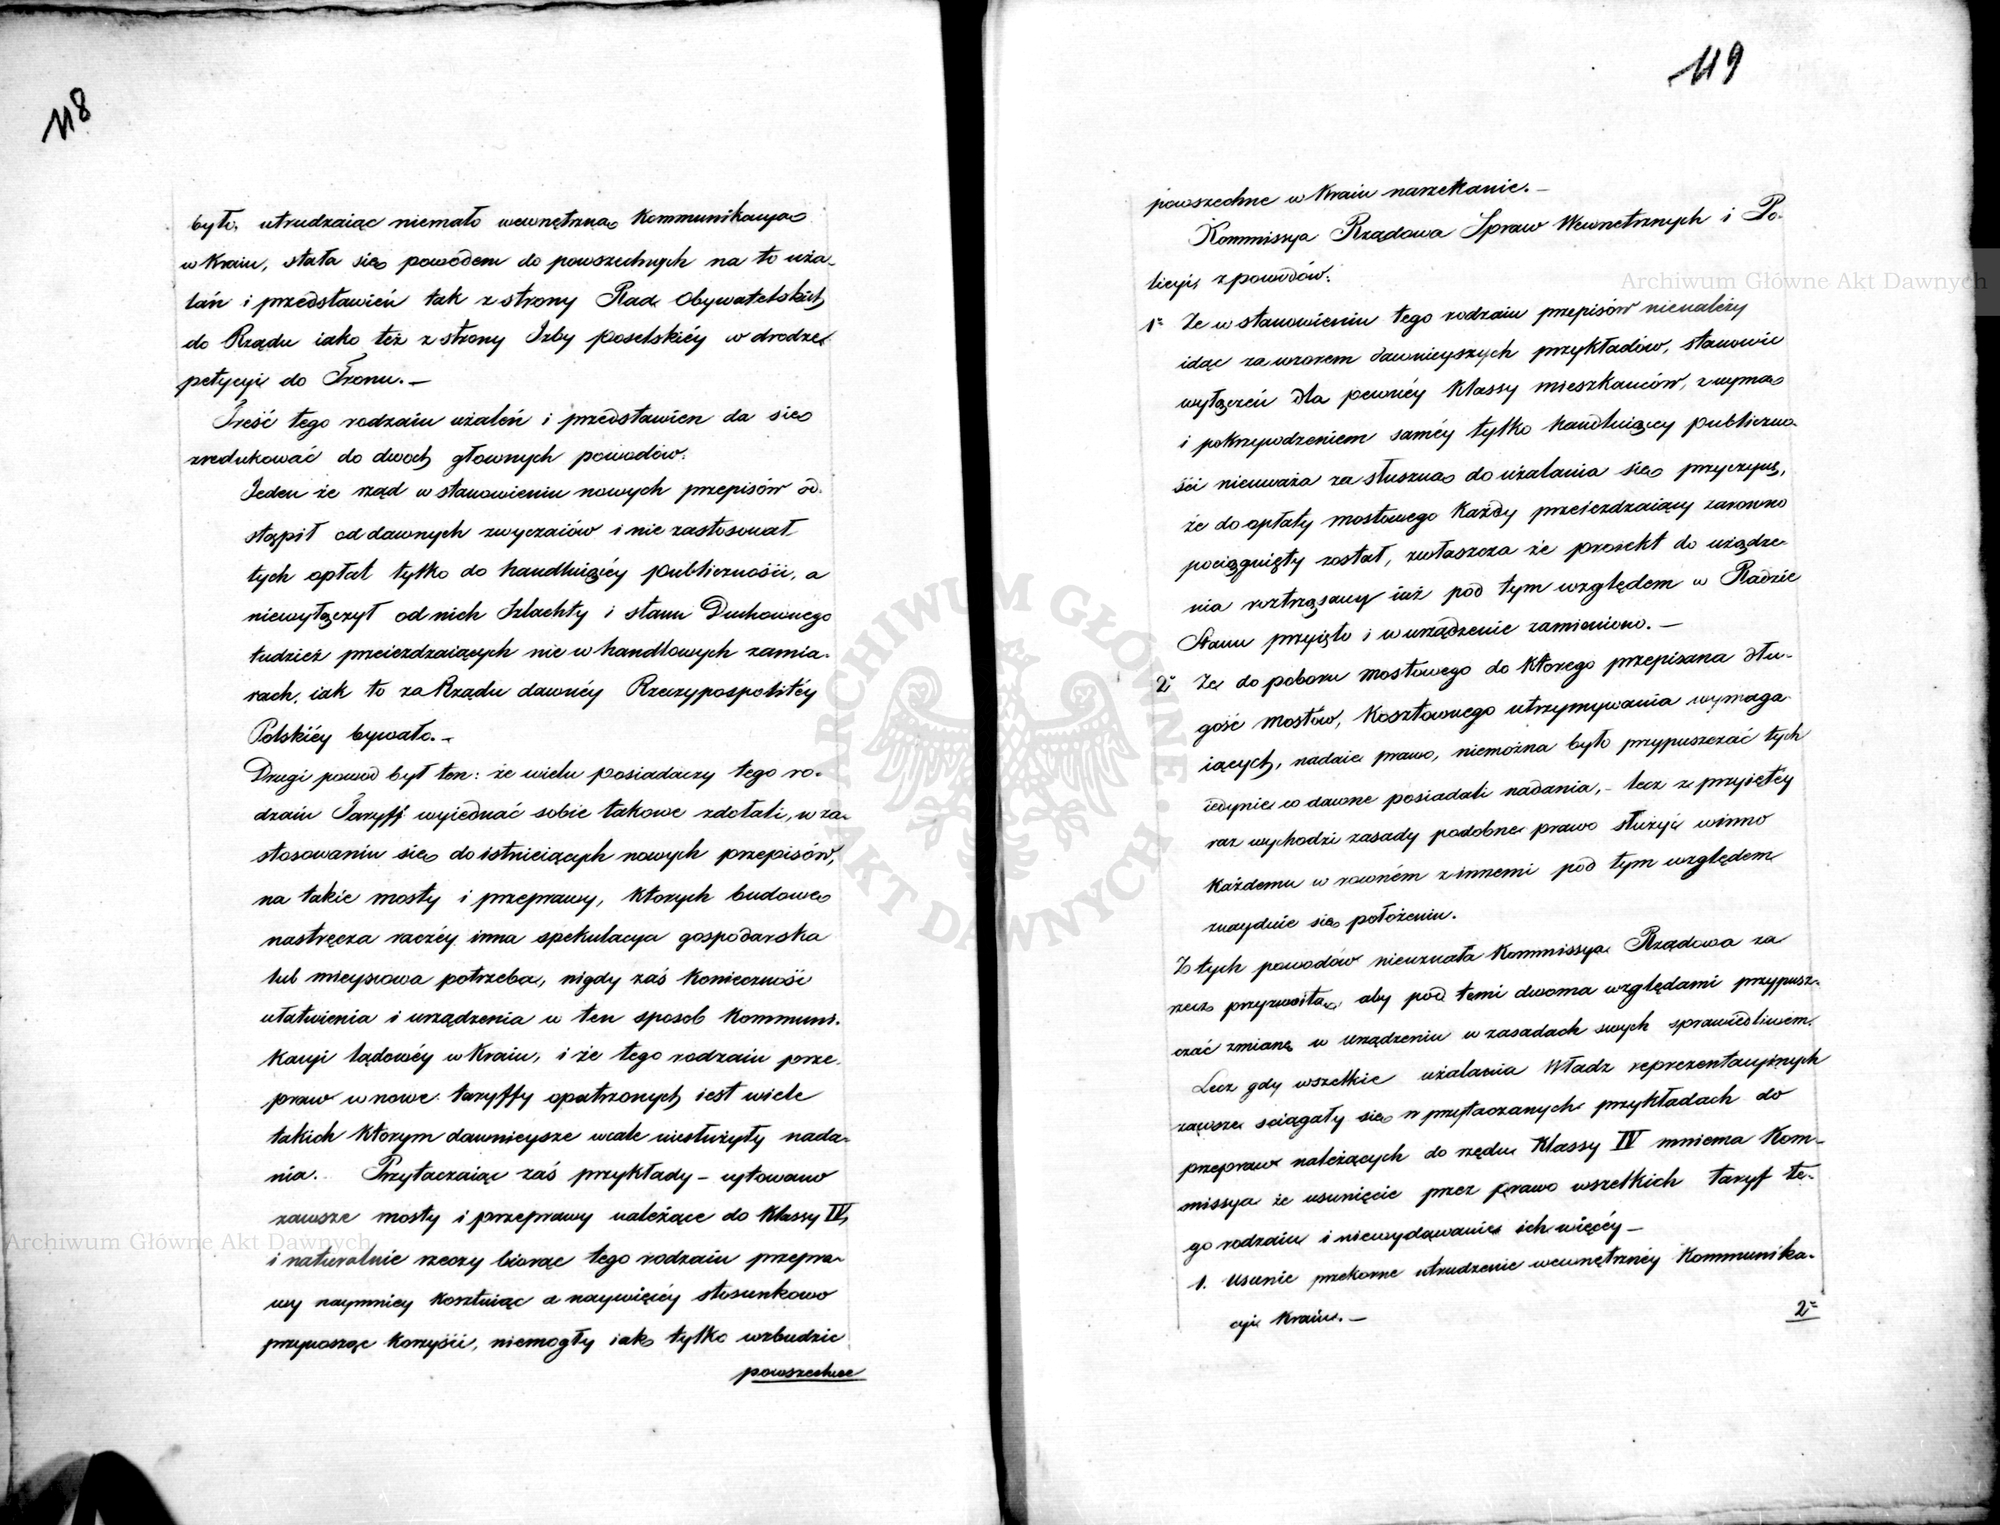 118
było, utrudzaiąc niemało wewnętrzną Kommunikacyą
w Kraiu, stała się powodem do powszechnych na to uża-
lań i przedstawień tak z strony Rad Obywatelskich
do Rządu iako też z strony Izby poselskiéy w drodze
petycyi do Tronu.—
Treść tego rodzaiu użaleń i przedstawien da się
zredukować do dwoch głownych powodów.
Jeden że rząd w stanowieniu nowych przepisów od-
stąpił od dawnych zwyczaiów i nie zastosował
tych opłat tylko do handluiącéy publiczności, a
niewyłączył od nich Szlachty i stanu Duchownego
tudzież przeieżdzaiących nie w handlowych zamia-
rach, iak to za Rządu dawnéy Rzeczypospolitéy
Polskiéy bywało.—
Drugi powod był ten: że wielu posiadaczy tego ro-
dzaiu Taryff wyiednać sobie takowe zdołali, w za-
stosowaniu się do istnieiących nowych przepisów,
na takie mosty i przeprawy, ktorych budowę
nastręcza raczéy inna spekulacya gospodarska
lub mieyscowa potrzeba, nigdy zaś konieczność
ułatwienia i urządzenia w ten sposob Kommuni-
kacyi lądowéy w Kraiu, i że tego rodzaiu prze-
praw w nowe taryffy opatrzonych iest wiele
takich ktorym dawnieysze wcale niesłużyły nada-
nia. Przytaczaiąc zaś przykłady – cytowano
zawsze mosty i przeprawy należące do Klassy IV,
i naturalnie rzeczy biorąc tego rodzaiu przepra-
wy naymniey kosztuiąc a naywięcéy stosunkowo
przynosząc korzyści, niemogły iak tylko wzbudzić
powszechne
119
powszechne w Kraiu narzekanie.—
Kommissya Rządowa Spraw Wewnetrznych i Po-
licyi, z powodów:
1° Że w stanowieniu tego rodzaiu przepisów nienależy
idąc za wzorem dawnieyszych przykładów, stanowić
wyłączeń dla pewnéy Klassy mieszkańców, z wymą
i pokrzywdzeniem saméy tylko handluiącey publiczno-
ści nieuważa za słuszną do użalania się przyczynę,
że do opłaty mostowego każdy przeieżdzaiący zarowno
pociągnięty został, zwłaszcza że proiekt do urządze-
nia roztrząsany iuż pod tym względem w Radzie
Stanu przyięto i w urządzenie zamieniono.—
2° Że do poboru mostowego do ktorego przepisana dłu-
gość mostów, kosztownego utrzymywania wymaga-
iących, nadaie prawo, niemożna było przypuszczać tych
iedynie co dawne posiadali nadania,– lecz z przyiętéy
raz wychodzi zasady podobne prawo służyć winno
każdemu w rowném z innemi pod tym względem
znayduie się położeniu.
Z tych powodów nieuznała Kommissya Rządowa za
rzecz przyzwoitą, aby pod temi dwoma względami przypusz-
czać zmianę w urządzeniu w zasadach swych sprawiedliwem.
Lecz gdy wszelkie użalania Władz reprezentacyinych
zawsze sciągały się w przytaczanych przykładach do
przepraw należących do rzędu Klassy IV mniema Kom-
missya że usunięcie przez prawo wszelkich taryf te-
go rodzaiu i niewydawanie ich więcéy—
1. Usunie przekorne utrudzenie wewnętrznéy Kommunika-
cyi Kraiu.—
2°
Archiwum Główne Akt Dawnych
Archiwum Główne Akt Dawnych
ARCHIWUM GŁÓWNE AKT DAWNYCH